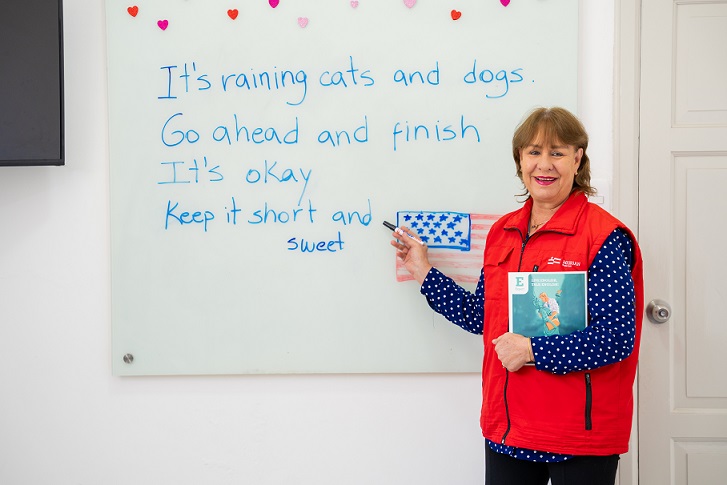 It's raining cats and dogs.
Go ahead and finish
It's okay
Keep it short and
sweet
E